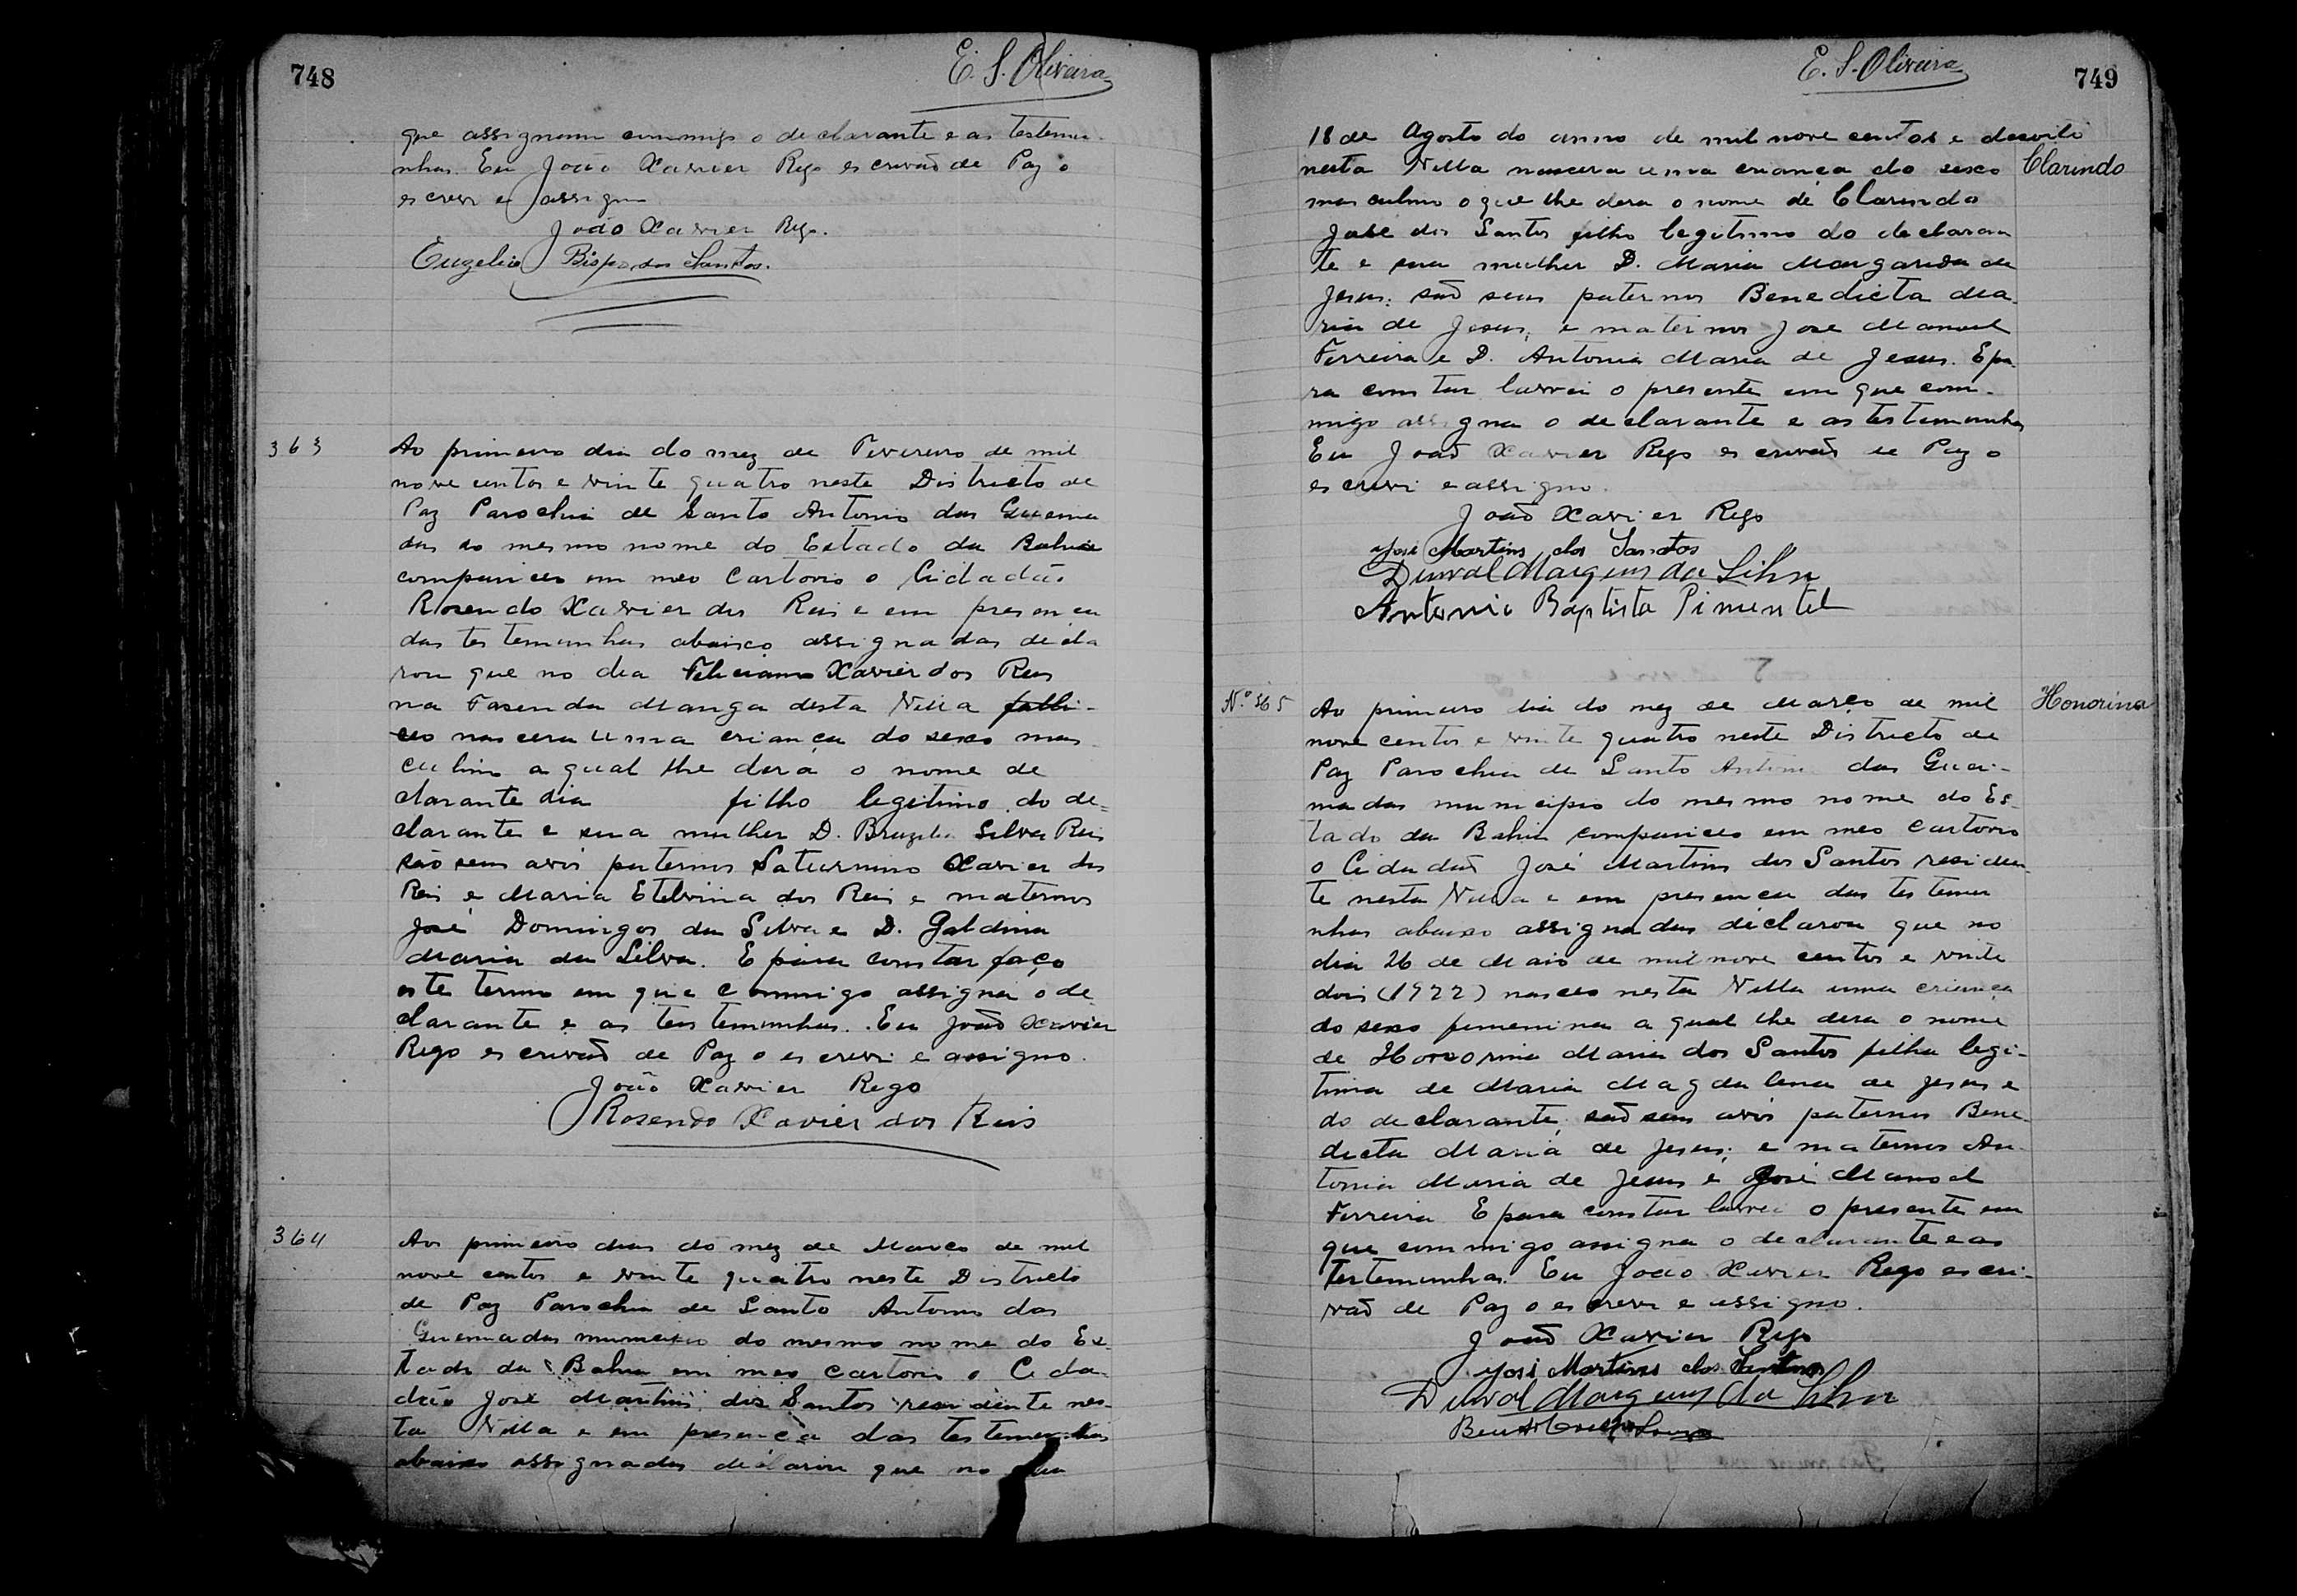 748
E. S. Oliveira
que assignam commigo o declarante e as testemu-
nhas. Eu João Xavier Rego escrivão de Paz o
escrevi e assigno
João Xavier Rego.
Bispo dos Santos.
363
Ao primeiro dia do mez de Fevereiro de mil
nove centos e vinte quatro neste Districto de
Paz Parochia de Santo Antonio das Queima
das do mesmo nome do Estado da Bahia
compareceo em meo Cartorio o Cidadão
Rosendo Xavier dos Reis e em presenca
das testemunhas abaixo assignadas decla
rou que no dia Feliciano Xavier dos Reis
na Fasenda Manga desta Villa falle-
ceo nascera uma criança do sexo mas
culino a qual lhe dera o nome de
clarante dia filho legitimo do de=
clarante e sua mulher D. Brazilia Silva Reis
são seus avós paternos Saturnino Xavier dos
Reis e Maria Etelvina dos Reis e maternos
José Domingos da Silva e D. Galdina
Maria da Silva. E para constar faço
este termo em que commigo assigna o de
clarante e as testemunhas. Eu João Xavier
Rego escrivão de Paz o escrevi e assigno.
João Xavier Rego
Rosendo Xavier dos Reis
364
Aos primeiro dias do mez de Março de mil
nove centos e vinte quatro neste Districto
de Paz Parochia de Santo Antonio das
Queimadas municipio do mesmo nome do Es-
tado da Bahia em meo Cartorio o Cida-
dão José Martins dos Santos residente nes-
ta Villa e em presenca das testemunhas
abaixo assignadas declarou que no dia
E. S. Oliveira
749
18 de Agosto do anno de mil nove centos e desoito
nesta Villa nascera uma criança do sexo
Clarindo
masculino o que lhe dera o nome de Clarindo
José dos Santos filho legitimo do declaran
te e sua mulher D. Maria Margarida de
Jesus: são seus paternos Benedicta Ma
ria de Jesus; e maternos José Manoel
Ferreira e D. Antonia Maria de Jesus. E pa
ra constar lavrei o presente em que com-
migo assigna o declarante e as testemunhas
Eu João Xavier Rego escrivão de Paz o
escrevi e assigno.
João Xavier Rego
José Martins dos Santos
Durval Marques da Silva
Antonio Baptista Pimentel
Nº 365
Honorina
Ao primeiro dia do mez de Março de mil
nove centos e vinte quatro neste Districto de
Paz Parochia de Santo Antonio das Quei-
madas municipio do mesmo nome do Es-
tado da Bahia compareceo em meo Cartorio
o Cidadão José Martins dos Santos residen-
te nesta Villa e em presenca das testemu
nhas abaixo assignadas declarou que no
dia 26 de Maio de mil nove centos e vinte
dois (1922) nasceo nesta Villa uma criança
do sexo femenina a qual lhe dera o nome
de Honorina Maria dos Santos filha legi-
tima de Maria Magdalena de Jesus e
do declarante; são seus avós paternos Bene
dicta Maria de Jesus; e maternos An-
tonia Maria de Jesus e José Manoel
Ferreira E para constar lavrei o presente em
que commigo assigna o declarante e as
testemunhas. Eu João Xavier Rego escri-
vão de Paz o escrevi e assigno.
João Xavier Rego
José Martins dos Santos
Durval Marques da Silva